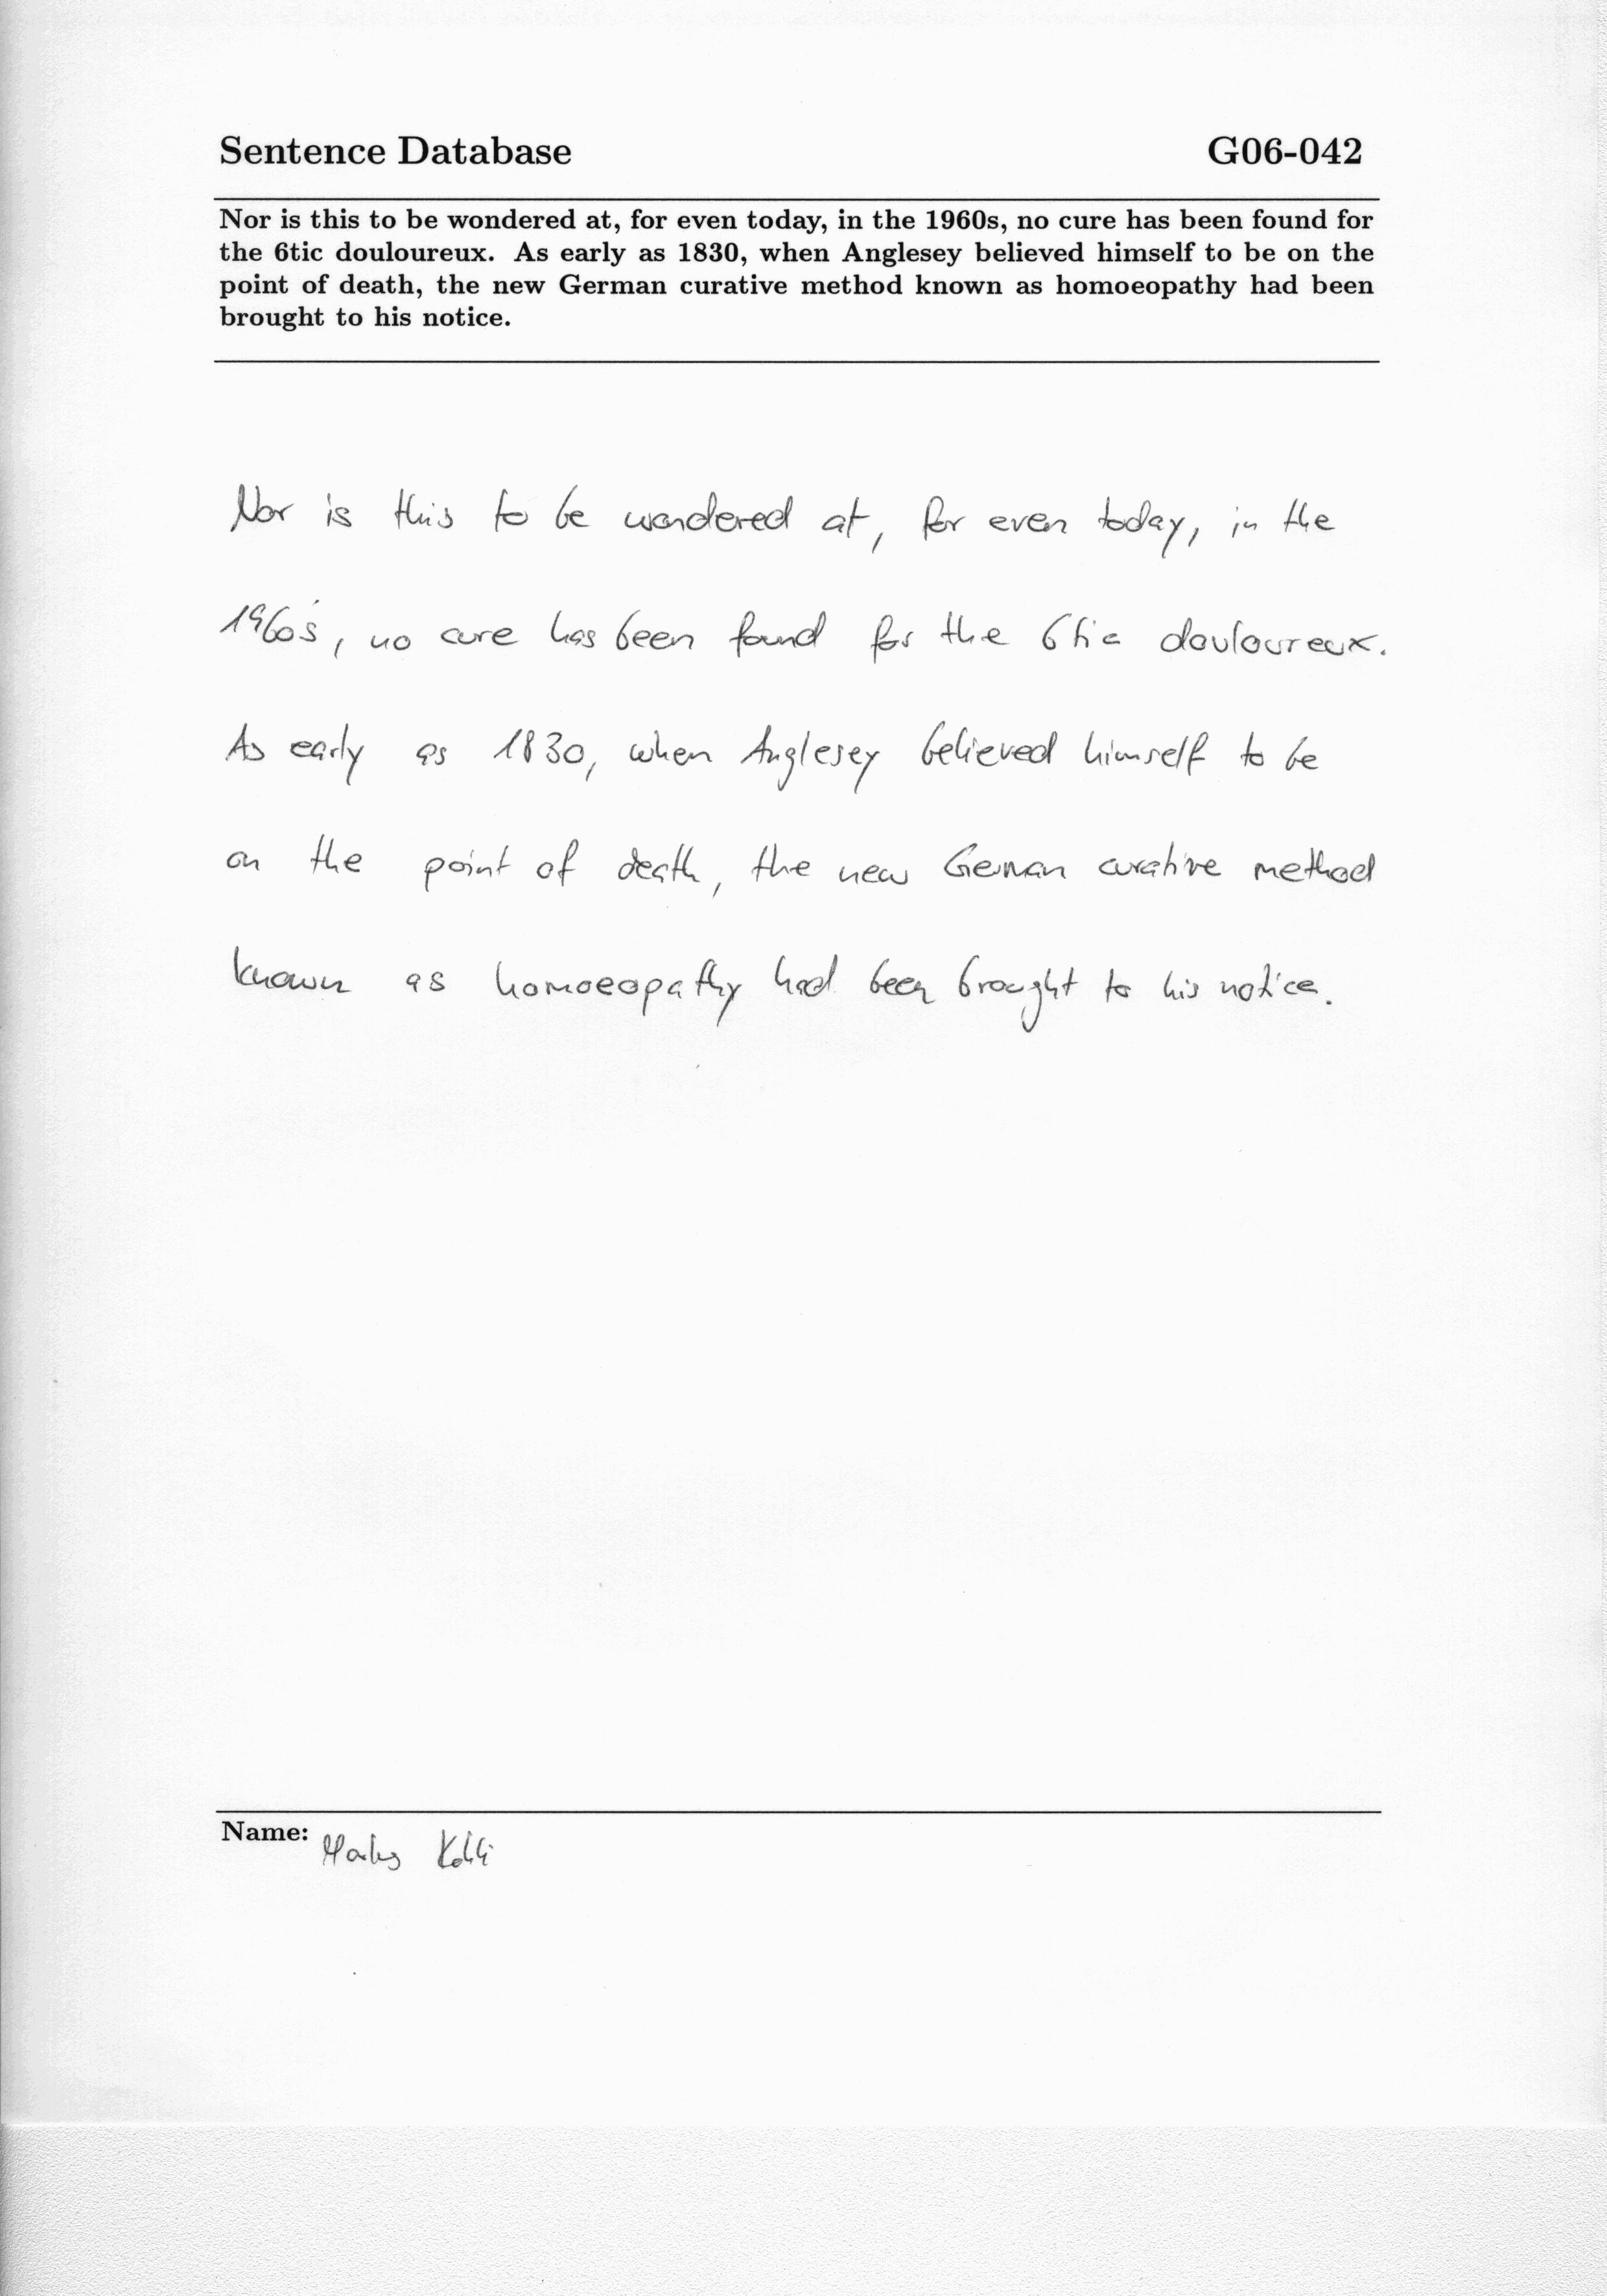 Sentence Database G06-042
Nor is this to be wondered at, for even today, in the 1960s, no cure has been found for
the 6tic douloureux. As early as 1830, when Anglesey believed himself to be on the
point of death, the new German curative method known as homoeopathy had been
brought to his notice.
Nor is this to be wondered at, for even today, in the
1960's, no cure has been found for the 6tic douloureux.
As early as 1830, when Anglesey believed himself to be
on the point of death, the new German curative method
known as homoeopathy had been brought to his notice.
Name: